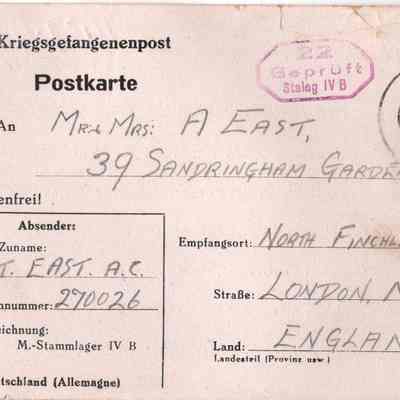 Kriegsgefangenenpost
22
Geprüft
Stalag IV B
Postkarte
An MR & MRS: A EAST,
39 SANDRINGHAM GARDE
enfrei!
Absender:
Zuname:
T. EAST. A.C.
nnummer: 270026
zeichnung:
M.-Stammlager IV B
utschland (Allemagne)
Empfangsort: NORTH FINCHL
Straße: LONDON, N
Land: ENGLAN
Landesteil (Provinz usw.)